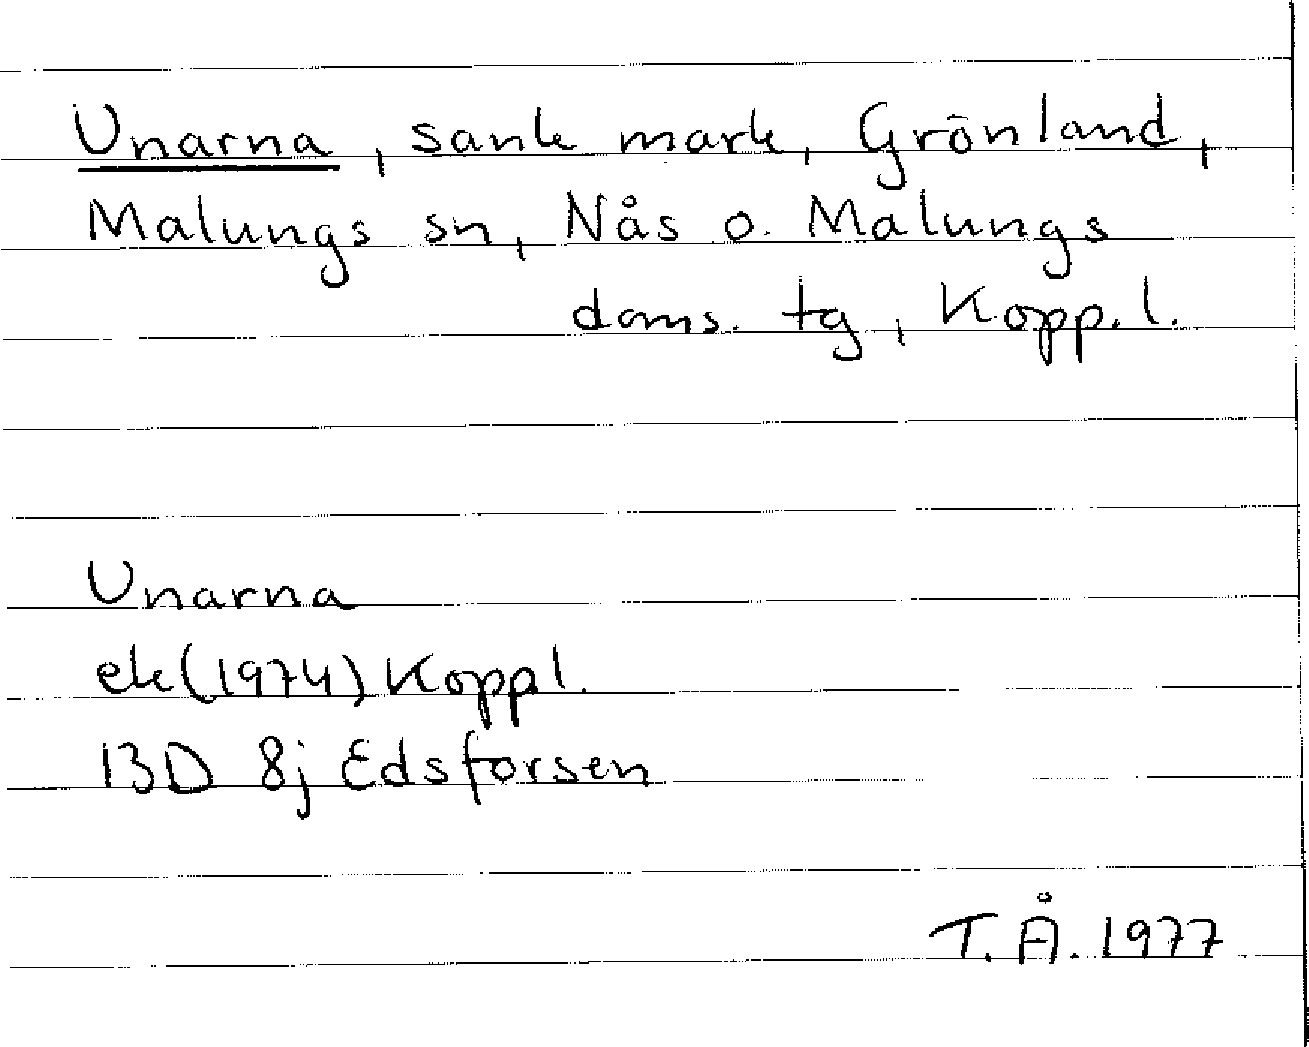 Unarna, sank mark, Grönland,
Malungs sn, Nås o. Malungs
doms. tg, Kopp. l.
Unarna
ek (1974) Kopp l.
13D 8j Edsforsen
T. Å. 1977